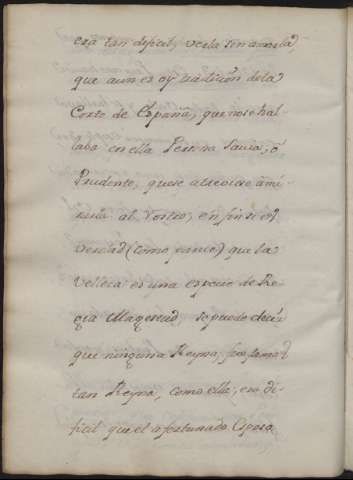 era tan dificil, verla sin amarla,
que aun es oy tradicion de la
Corte de España, que no se hal-
laba en ella Persona Savia, ó
Prudente, que se atreviese á mi-
rarla al Rostro, en fin si es
verdad (como parece) que la
Velleza es una especie de Re-
gia Magestad, se puede decir
que ninguna Reyna, fue jamas
tan Reyna, como ella, era di-
ficil que el afortunado Esposo